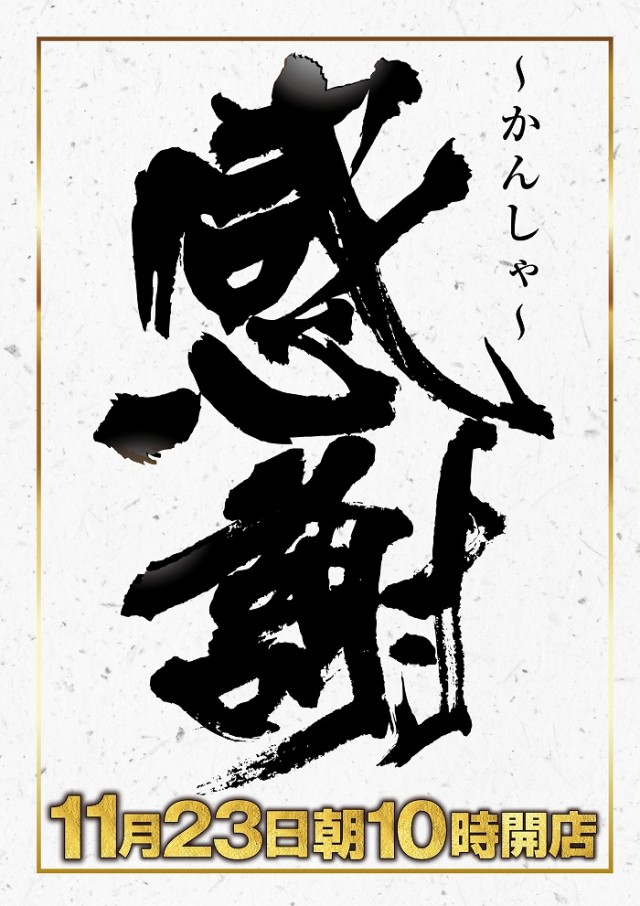 感謝
~かんしゃ~
11月23日朝10時開店